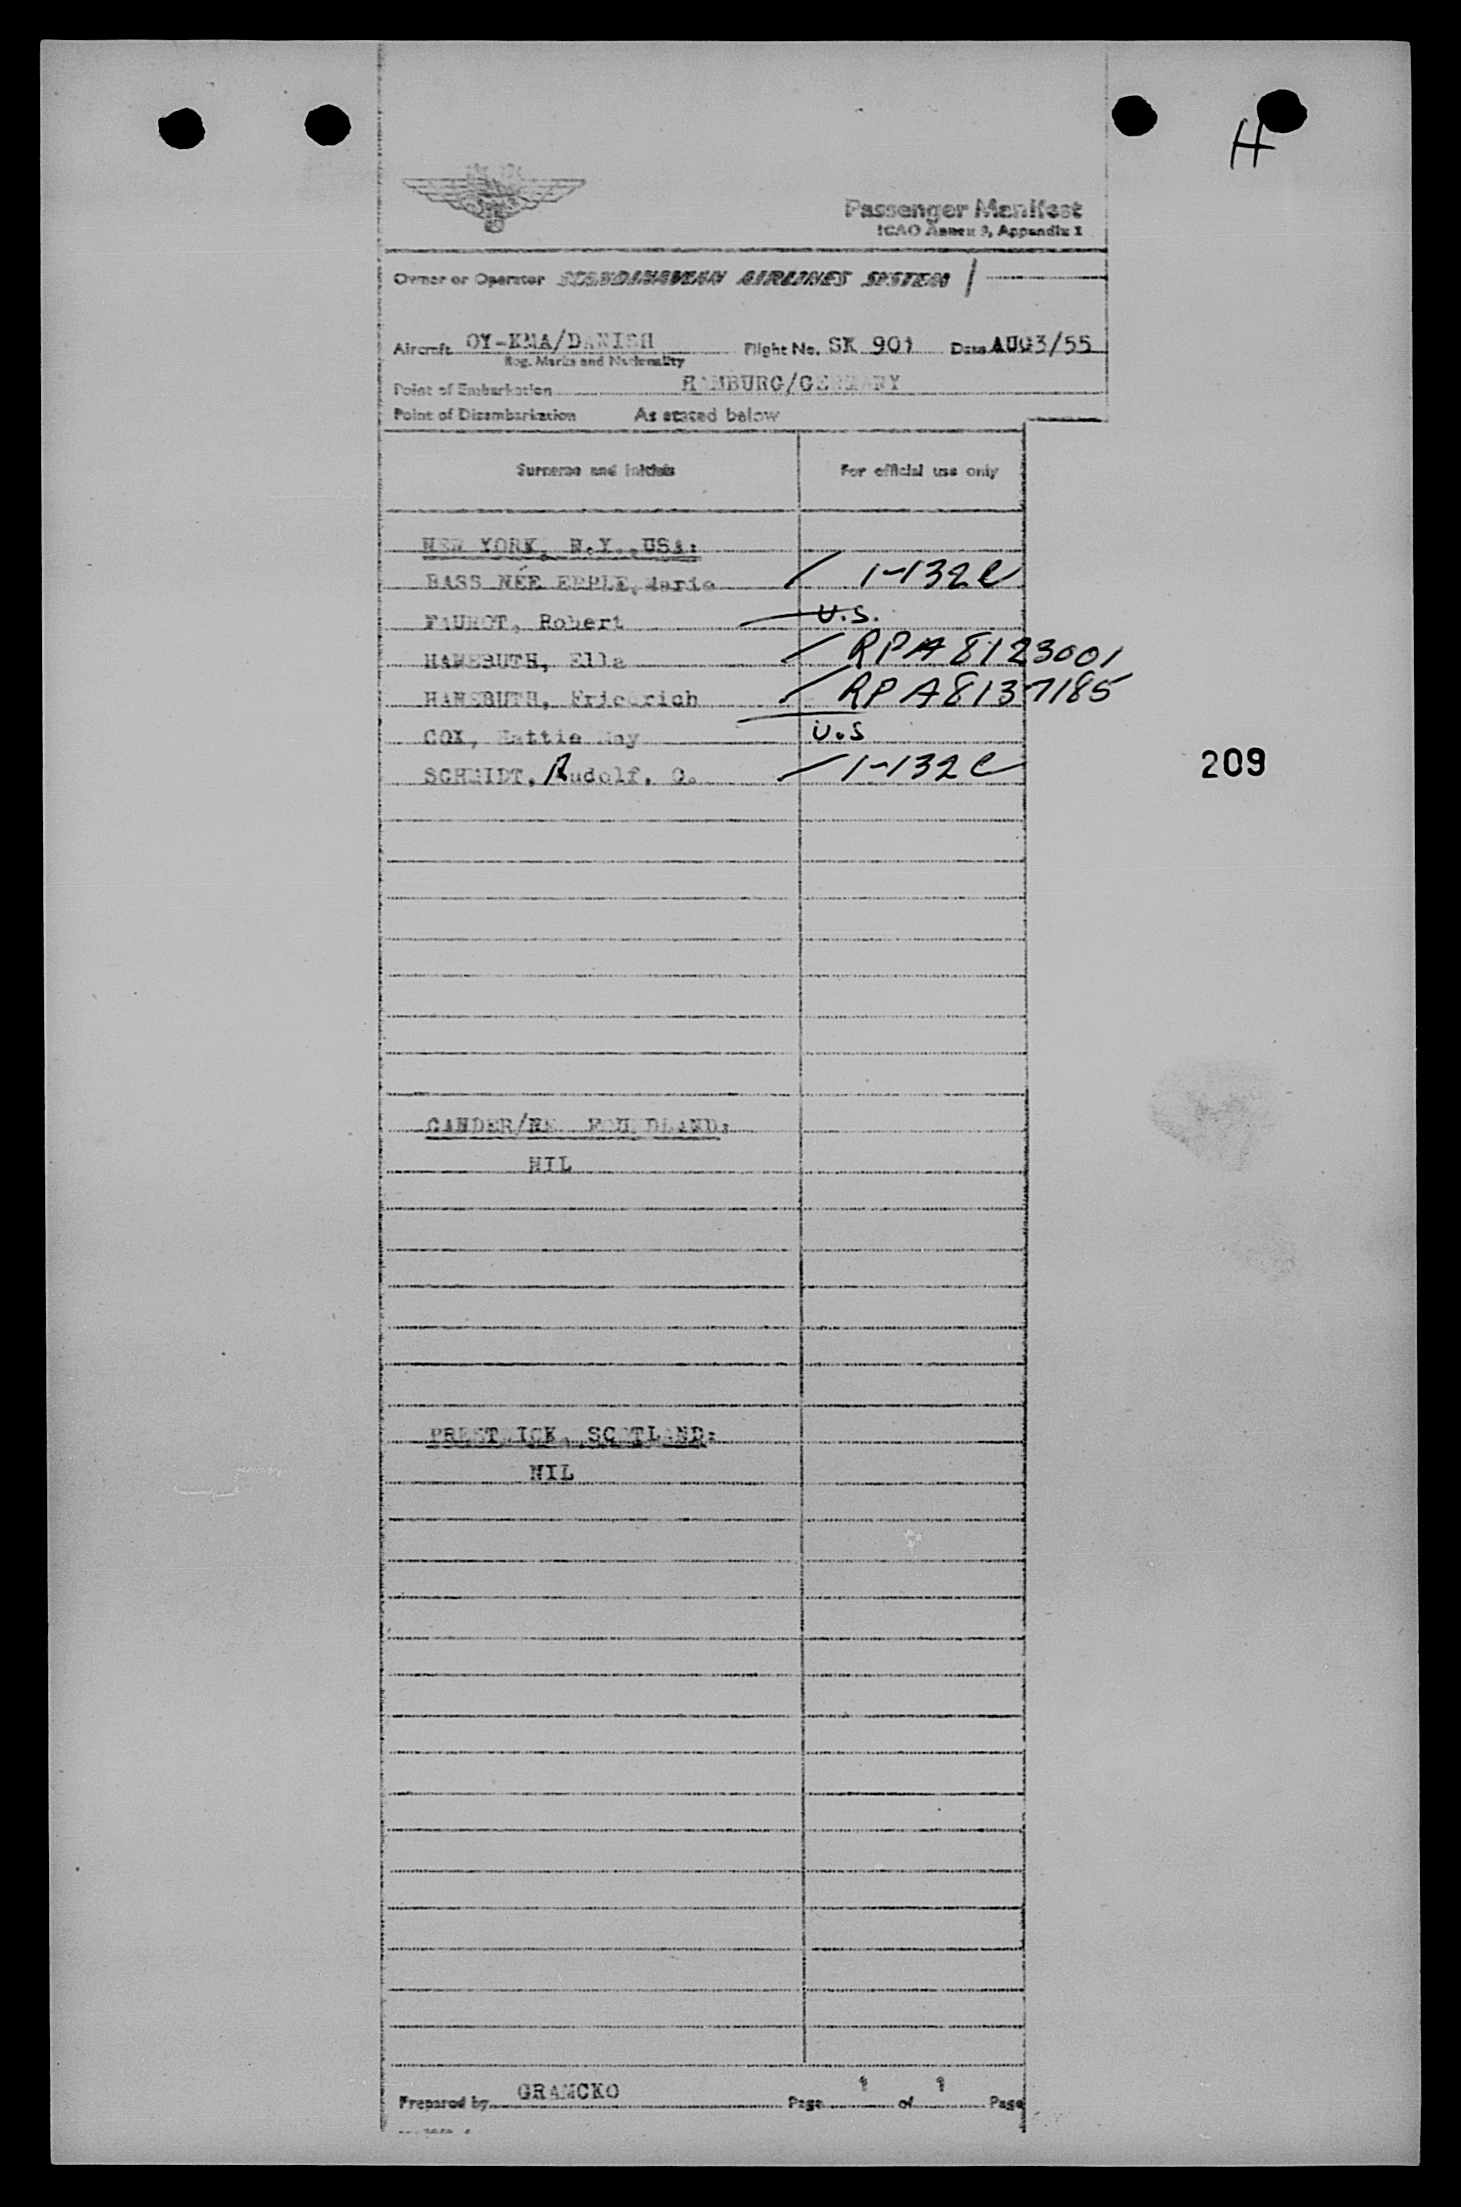 H
Passenger Manifest
ICAO Annex 9, Appendix 1
Owner or Operator SCANDINAVIAN AIRLINES SYSTEM /
Aircraft OY-KMA/DANISH Flight No. SK 901 Date AUG3/55
Reg. Marks and Nationality
Point of Embarkation HAMBURG/GERMANY
Point of Disembarkation As stated below
Surname and initials For official use only
NEW YORK, N.Y.,USA:
BASS NÉE EPPLE, Marie / 1-132C
FAUROT, Robert U.S.
HANEBUTH, Ella / RPA 8123001
HANEBUTH, Friedrich / RPA 8137185
COX, Hattie May U.S
SCHMIDT, Rudolf. O. / 1-132C
209
GANDER/NEWFOUNDLAND:
NIL
PRESTWICK, SCOTLAND:
NIL
Prepared by GRAMCKO Page 1 of 1 Page